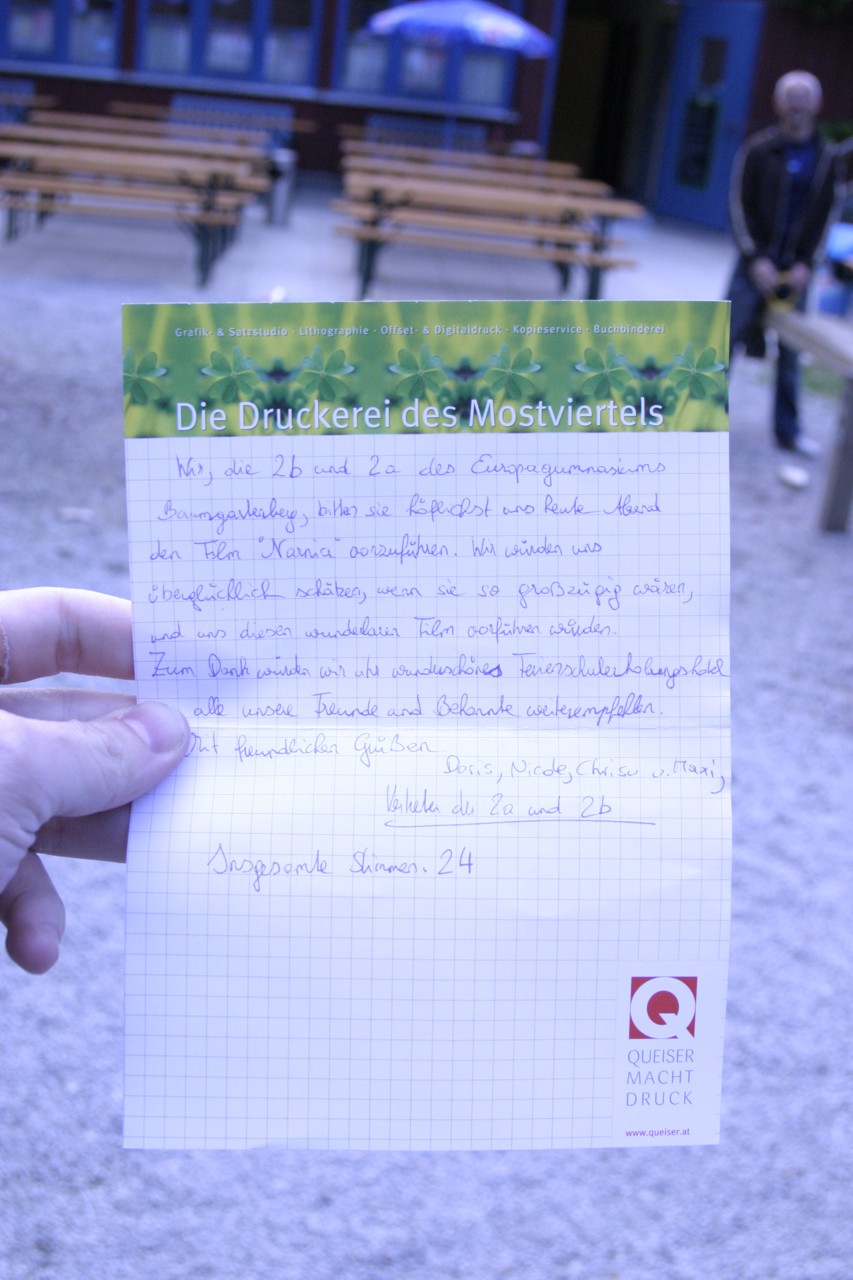 Grafik- & Satzstudio · Lithographie · Offset- & Digitaldruck · Kopieservice · Buchbinderei
Die Druckerei des Mostviertels
Wir, die 2b und 2a des Europagymnasiums
Baumgartenberg, bitten sie höflichst uns heute Abend
den Film "Narnia" vorzuführen. Wir würden uns
überglücklich schätzen, wenn sie so großzügig wären,
und uns diesen wunderbaren Film vorführen würden.
Zum Dank würden wir ihr wunderschönes
alle unsere Freunde und Bekannte weiterempfehlen.
Mit freundlichen Grüßen
Doris, Nicole, Chrisu u. Maxi,
der 2a und 2b
Insgesamte Stimmen: 24
Q
QUEISER
MACHT
DRUCK
www.queiser.at